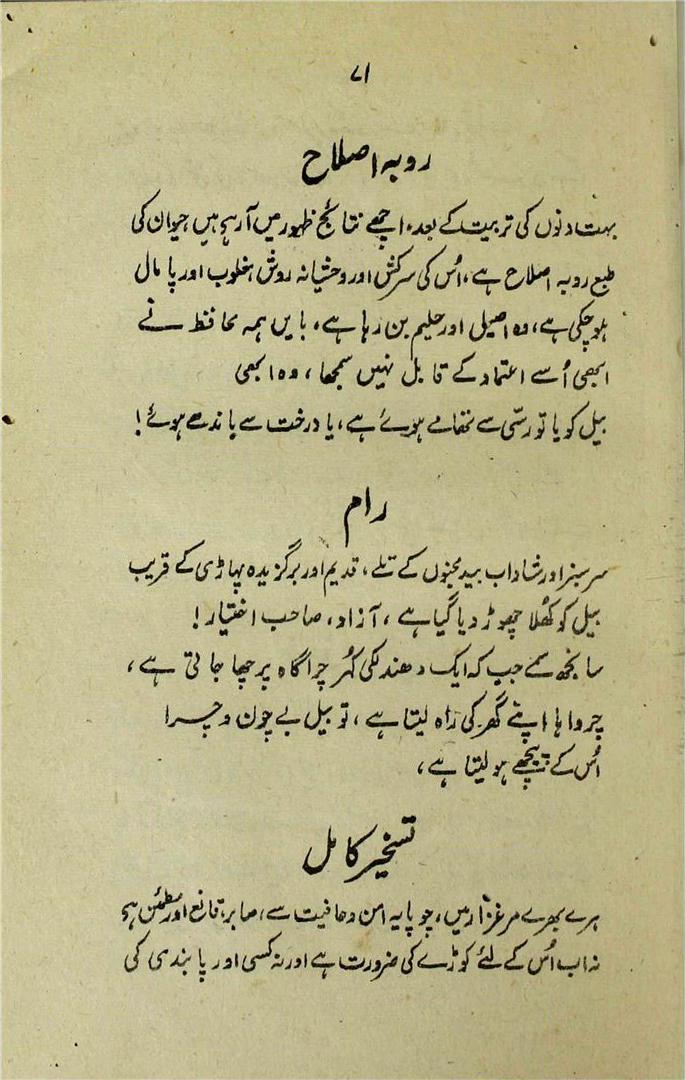 ۷۱
روبہ اصلاح
بہت دنوں کی تربیت کے بعد، اچھے نتائج ظہور میں آ رہے ہیں حیوان کی
طبع روبہ اصلاح ہے، اُس کی سرکش اور وحشیانہ روش مغلوب اور پامال
ہو چکی ہے، وہ اصیل اور حلیم بن رہا ہے، بایں ہمہ محافظ نے
ابھی اُسے اعتماد کے قابل نہیں سمجھا، وہ ابھی
بیل کو یا تو رسّی سے تھامے ہوئے ہے، یا درخت سے باندھے ہوئے!
رام
سرسبز اور شاداب بید مجنوں کے تلے، قدیم اور برگزیدہ پہاڑی کے قریب
بیل کو کھُلا چھوڑ دیا گیا ہے، آزاد، صاحب اختیار!
سانجھ سمے جب کہ ایک دھندلکی کُہر چراگاہ پر چھا جاتی ہے،
چرواہا اپنے گھر کی راہ لیتا ہے، تو بیل بے چون و چرا
اُس کے پیچھے ہو لیتا ہے،
تسخیر کامل
ہرے بھرے مرغزار میں، چوپایہ امن و عافیت سے، صابر، قانع اور مطمئن ہے
نہ اب اُس کے لئے کوڑے کی ضرورت ہے اور نہ کسی اور پابندی کی